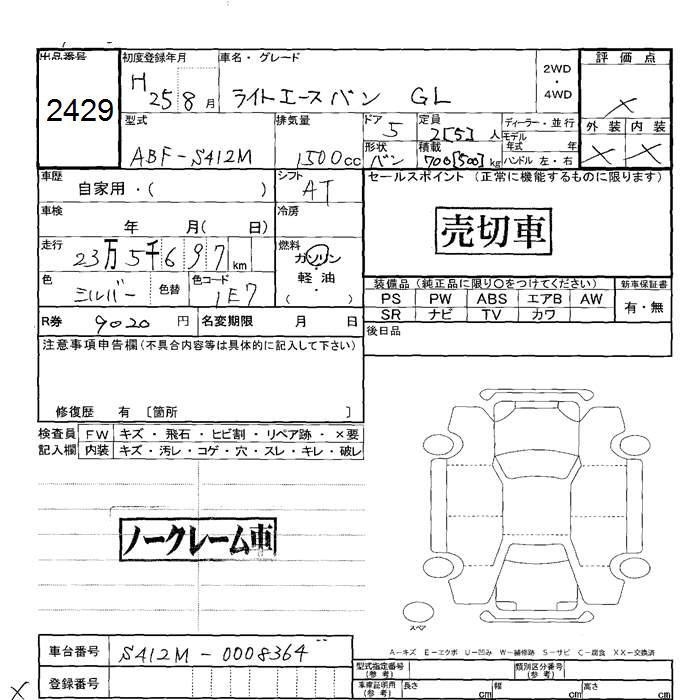 出品番号 初度登録年月 車名・グレード 評価点
2429 H 25 8月 ライトエースバン GL 2WD・4WD
型式 排気量 ドア 5 定員 2[5]人 ディーラー・並行 外装 内装
ABF-S412M 1500cc 形状 バン 積載 700[500]kg モデル年式 年
ハンドル 左・右
車歴 自家用・( ) シフト AT セールスポイント(正常に機能するものに限ります)
車検 年 月( 日) 冷房
売切車
走行 23万5千697km 燃料 ガソリン・軽油・( )
色 シルバー 色替 色コード 1E7
装備品(純正品に限り○をつけてください) 新車保証書
PS PW ABS エアB AW 有・無
SR ナビ TV カワ
R券 9020円 名変期限 月 日 後日品
注意事項申告欄(不具合内容等は具体的に記入して下さい)
修復歴 有 [箇所 ]
検査員 FW キズ・飛石・ヒビ割・リペア跡・×要
記入欄 内装 キズ・汚レ・コゲ・穴・スレ・キレ・破レ
ノークレーム車
スペア
A―キズ E―エクボ U―凹み W―補修跡 S―サビ C―腐食 XX―交換済
車台番号 S412M-0008364
型式指定番号(参考) 類別区分番号(参考)
登録番号 車庫証明用(参考) 長さ cm 幅 cm 高さ cm